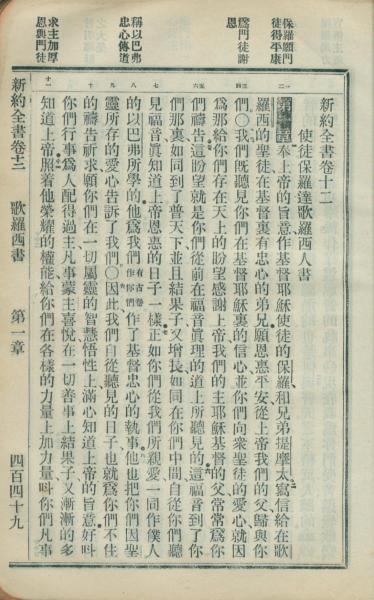 保羅願門
徒得平康
為門徒謝
恩
稱以巴弗
忠心傳道
求主加厚
恩與門徒
新約全書卷十二
使徒保羅達歌羅西人書
第一章
奉上帝的旨意作基督耶穌使徒的保羅和兄弟提摩太寫信給在歌
羅西的聖徒在基督裏有忠心的弟兄願恩惠平安從上帝我們的父歸與你
們〇我們旣聽見你們在基督耶穌裏的信心並你們向衆聖徒的愛心就因
為那給你們存在天上的盼望感謝上帝我們的主耶穌基督的父常常為你
們禱告這盼望就是你們從前在福音眞理的道上所聽見的這福音到了你
們那裏如同到了普天下並且結果子又增長如同在你們中間自從你們聽
見福音眞知道上帝恩惠的日子一樣正如你們從我們所親愛一同作僕人
的以巴弗所學的他為我們有古卷作你們作了基督忠心的執事他也把你們因聖
靈所存的愛心告訴了我們〇因此我們自從聽見的日子也就為你們不住
的禱告祈求願你們在一切屬靈的智慧悟性上滿心知道上帝的旨意好叫
你們行事為人配得過主凡事蒙主喜悅在一切善事上結果子又漸漸的多
知道上帝照着他榮耀的權能給你們在各樣的力量上加力量叫你們凡事
新約全書卷十二 歌羅西書 第一章 四百四十九